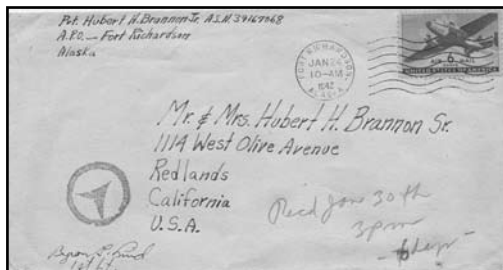 Pvt. Hubert H. Brannon Jr. A.S.N. 39167068
A.P.O. — Fort Richardson
Alaska
FORT RICHARDSON
JAN 24
10-AM
1942
ALASKA
AIR MAIL
6
UNITED STATES OF AMERICA
Mr. & Mrs. Hubert H. Brannon Sr.
1114 West Olive Avenue
Redlands
California
U.S.A.
Rec'd Jan 30th
3 pm
Byron
1st Lt